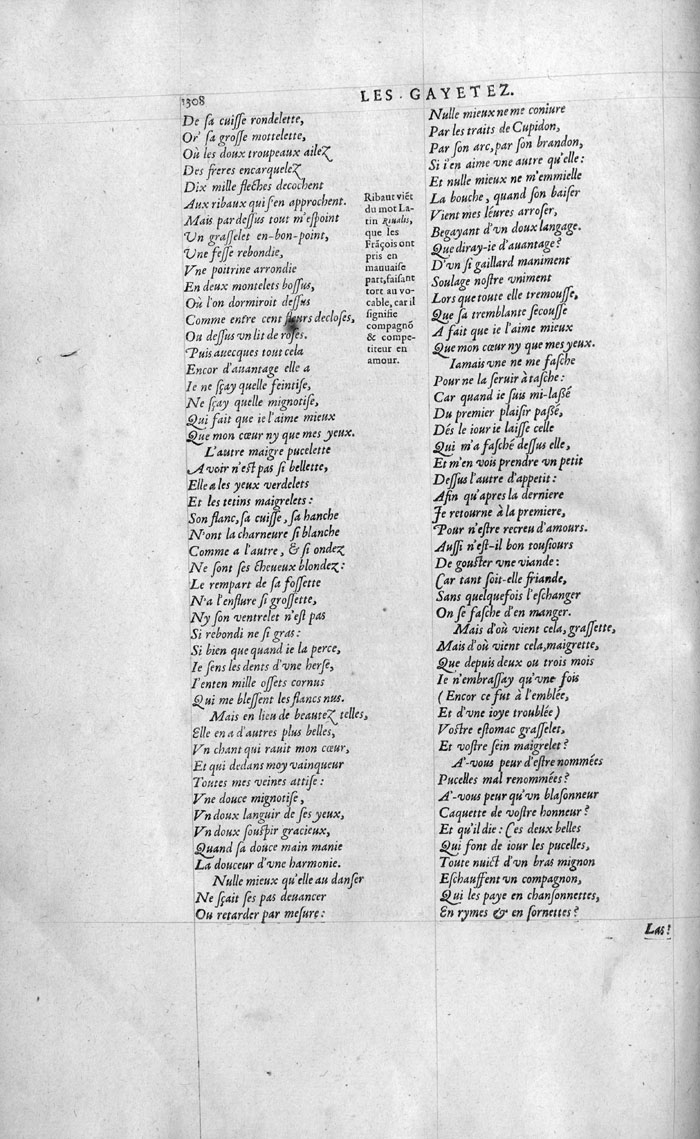 1308
LES GAYETEZ.
De ſa cuiſſe rondelette,
Or' ſa groſſe mottelette,
Où les doux troupeaux ailez
Des freres encarquelez
Dix mille fleches decochent
Aux ribaux qui s'en approchent.
Mais par deſſus tout m'eſpoint
Vn graſſelet en-bon-point,
Vne feſſe rebondie,
Vne poitrine arrondie
En deux montelets boſſus,
Où l'on dormiroit deſſus
Comme entre cent fleurs decloſes,
Ou deſſus vn lit de roſes.
Puis auecques tout cela
Encor d'auantage elle a
Ie ne ſçay quelle feintiſe,
Ne ſçay quelle mignotiſe,
Qui fait que ie l'aime mieux
Que mon cœur ny que mes yeux.
L'autre maigre pucelette
A voir n'eſt pas ſi bellette,
Elle a les yeux verdelets
Et les tetins maigrelets:
Son flanc, ſa cuiſſe, ſa hanche
N'ont la charneure ſi blanche
Comme a l'autre, & ſi ondez
Ne ſont ſes cheueux blondez:
Le rempart de ſa foſſette
N'a l'enflure ſi groſſette,
Ny ſon ventrelet n'eſt pas
Si rebondi ne ſi gras:
Si bien que quand ie la perce,
Ie ſens les dents d'vne herſe,
I'enten mille oſſets cornus
Qui me bleſſent les flancs nus.
Mais en lieu de beautez telles,
Elle en a d'autres plus belles,
Vn chant qui rauit mon cœur,
Et qui dedans moy vainqueur
Toutes mes veines attiſe:
Vne douce mignotiſe,
Vn doux languir de ſes yeux,
Vn doux ſouſpir gracieux,
Quand ſa douce main manie
La douceur d'vne harmonie.
Nulle mieux qu'elle au danſer
Ne ſçait ſes pas deuancer
Ou retarder par meſure:
Ribaut viẽt
du mot La-
tin Riualis,
que les
Frãçois ont
pris en
mauuaiſe
part, faiſant
tort au vo-
cable, car il
ſignifie
compagnõ
& compe-
titeur en
amour.
Nulle mieux ne me coniure
Par les traits de Cupidon,
Par ſon arc, par ſon brandon,
Si i'en aime vne autre qu'elle:
Et nulle mieux ne m'emmielle
La bouche, quand ſon baiſer
Vient mes léures arroſer,
Begayant d'vn doux langage.
Que diray-ie d'auantage?
D'vn ſi gaillard maniment
Soulage noſtre vniment
Lors que toute elle tremouſſe,
Que ſa tremblante ſecouſſe
A fait que ie l'aime mieux
Que mon cœur ny que mes yeux.
Iamais vne ne me faſche
Pour ne la ſeruir à taſche:
Car quand ie ſuis mi-laßé
Du premier plaiſir paßé,
Dés le iour ie laiſſe celle
Qui m'a faſché deſſus elle,
Et m'en vois prendre vn petit
Deſſus l'autre d'appetit:
Afin qu'apres la derniere
Ie retourne à la premiere,
Pour n'eſtre recreu d'amours.
Auſſi n'eſt-il bon touſiours
De gouſter vne viande:
Car tant ſoit-elle friande,
Sans quelquefois l'eſchanger
On ſe faſche d'en manger.
Mais d'où vient cela, graſſette,
Mais d'où vient cela, maigrette,
Que depuis deux ou trois mois
Ie n'embraſſay qu'vne fois
(Encor ce fut à l'emblée,
Et d'vne ioye troublée)
Voſtre eſtomac graſſelet,
Et voſtre ſein maigrelet?
A'-vous peur d'eſtre nommées
Pucelles mal renommées?
A'-vous peur qu'vn blaſonneur
Caquette de voſtre honneur?
Et qu'il die: Ces deux belles
Qui font de iour les pucelles,
Toute nuict d'vn bras mignon
Eſchauffent vn compagnon,
Qui les paye en chanſonnettes,
En rymes & en ſornettes?
Las!